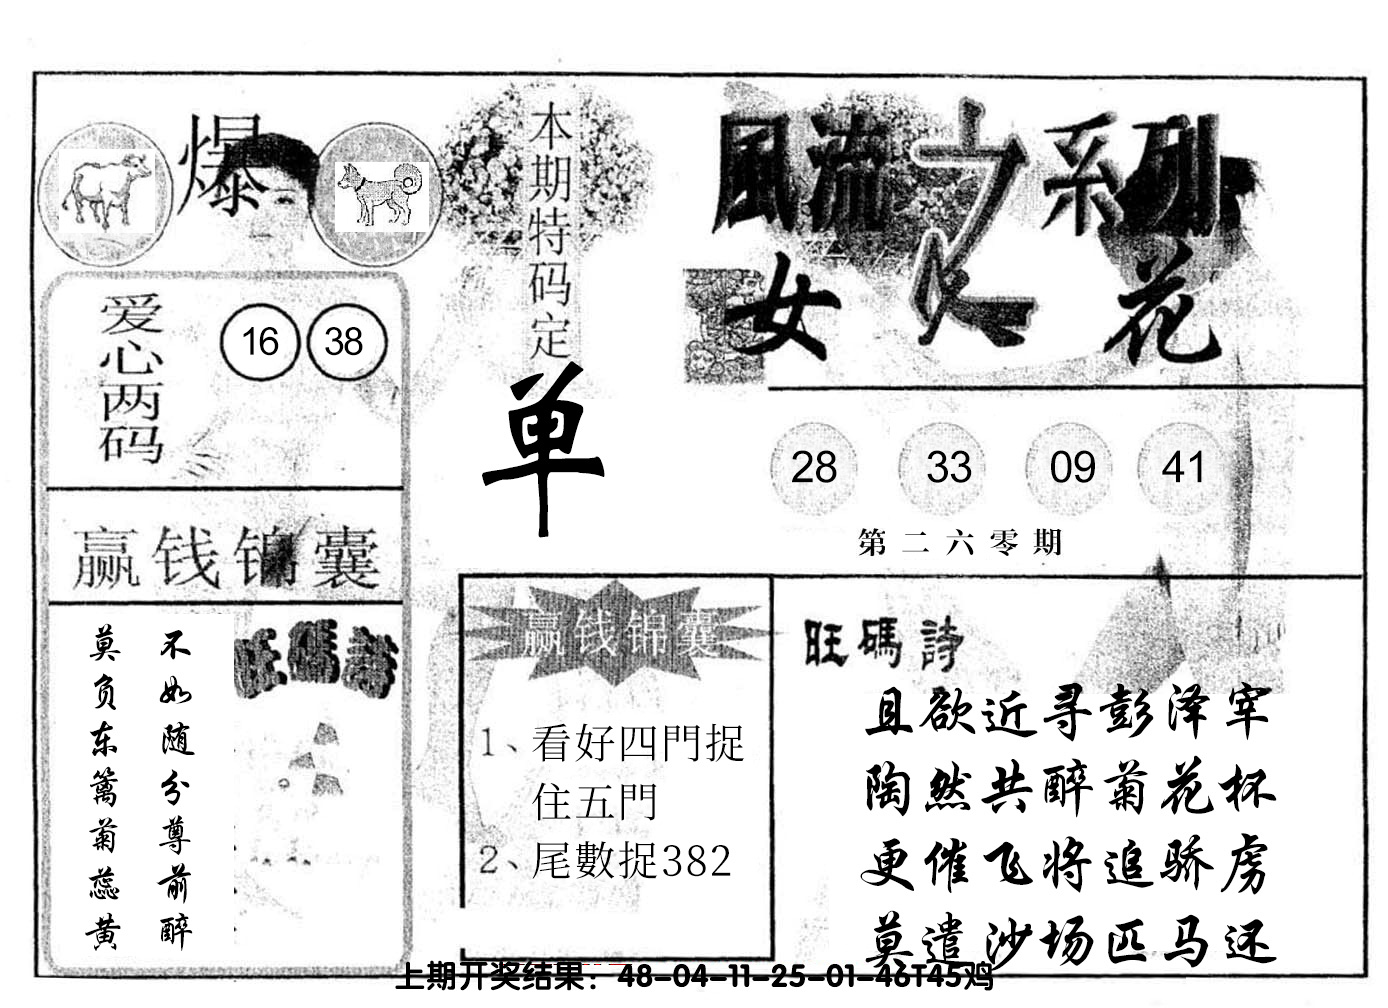 爆
本期特码定
单
風流之系列
女人花
爱心两码
16 38
28 33 09 41
第二六零期
赢钱锦囊
不如随分尊前醉
莫负东篱菊蕊黄
旺碼詩
赢钱锦囊
1、看好四門捉
住五門
2、尾數捉382
旺碼詩
且欲近寻彭泽宰
陶然共醉菊花杯
更催飞将追骄虏
莫遣沙场匹马还
上期开奖结果：48-04-11-25-01-46T45鸡